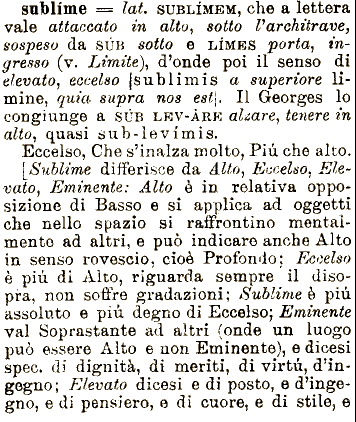 sublíme = lat. SUBLÍMEM, che a lettera
vale attaccato in alto, sotto l'architrave,
sospeso da SÚB sotto e LÍMES porta, in-
gresso (v. Limite), d'onde poi il senso di
elevato, eccelso [sublimis a superiore li-
mine, quia supra nos est]. Il Georges lo
congiunge a SÚB LEV-ÀRE alzare, tenere in
alto, quasi sub-levímis.
Eccelso, Che s'inalza molto, Piú che alto.
[Sublime differisce da Alto, Eccelso, Ele-
vato, Eminente: Alto è in relativa oppo-
sizione di Basso e si applica ad oggetti
che nello spazio si raffrontino mental-
mento ad altri, e può indicare anche Alto
in senso rovescio, cioè Profondo; Eccelso
è piú di Alto, riguarda sempre il diso-
pra, non soffre gradazioni; Sublime è piú
assoluto e piú degno di Eccelso; Eminente
val Soprastante ad altri (onde un luogo
può essere Alto e non Eminente), e dicesi
spec. di dignità, di meriti, di virtú, d'in-
gegno; Elevato dicesi e di posto, e d'inge-
gno, e di pensiero, e di cuore, e di stile, e